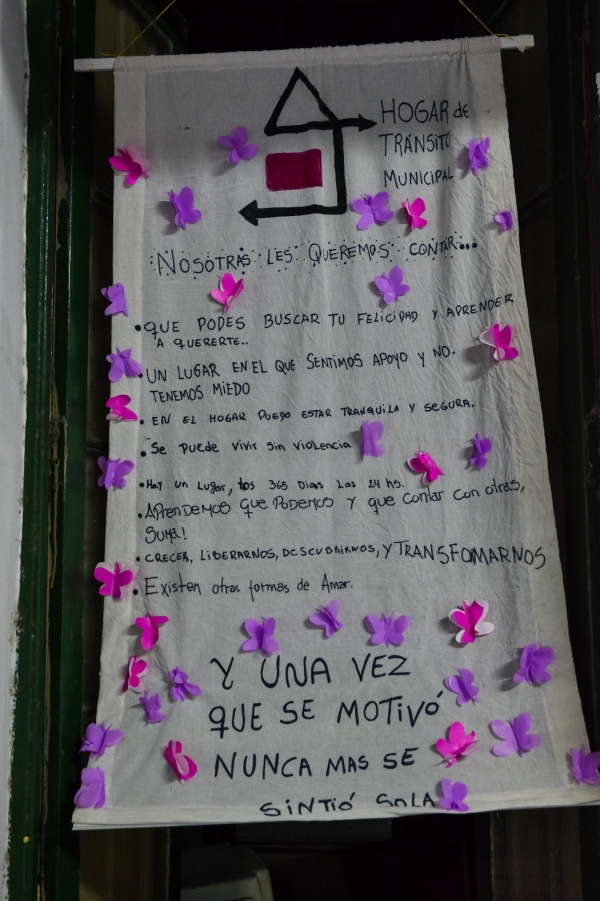 HOGAR de
TRÁNSITO
MUNICIPAL
NOSOTRAS LES QUEREMOS CONTAR...
• QUE PODES BUSCAR TU FELICIDAD Y APRENDER
A QUERERTE..
• UN LUGAR EN EL QUE SENTIMOS APOYO Y NO.
TENEMOS MIEDO
• EN EL HOGAR PUEDO ESTAR TRANQUILA Y SEGURA.
• Se puede vivir sin violencia
• Hay un Lugar, los 365 Dias Las 24 hs.
• APrenDemos que PoDemos Y que contar con otras,
SUMA!
• CRECER, LIBERARNOS, DESCUBRIRNOS, Y TRANSFOMARNOS
• Existen otras formas de Amar.
Y UNA VEZ
QUE SE MOTIVÓ
NUNCA MAS SE
SINTIÓ SOLA